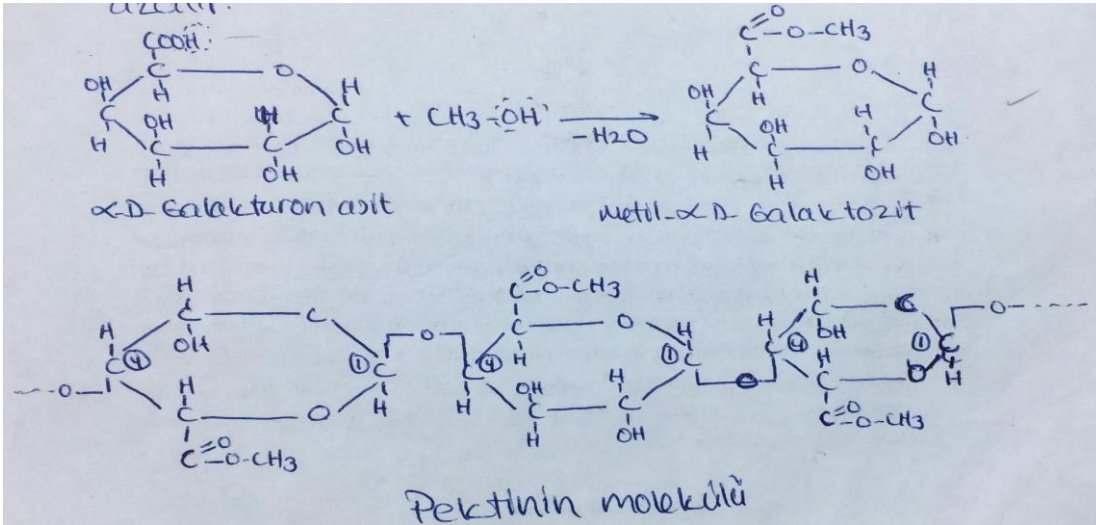 COOH
C
O
H
OH
H
C
OH
H
C
OH
H
C
H
C
OH
H
C
OH
+ CH3-OH
-H2O
C=O
O-CH3
C
O
H
OH
H
C
OH
H
C
OH
H
C
H
C
OH
H
C
OH
α-D-Galakturon asit
Metil-α D-Galaktozit
H
C
OH
C
H
C
4
1
C
H
O
H
C
O
C=O
O-CH3
O
C=O
O-CH3
C
H
O
H
C
4
1
C
H
OH
C
H
H
C
OH
O
H
C
OH
C
H
C
4
1
C
H
H
C
O
C=O
O-CH3
O
Pektinin molekülü